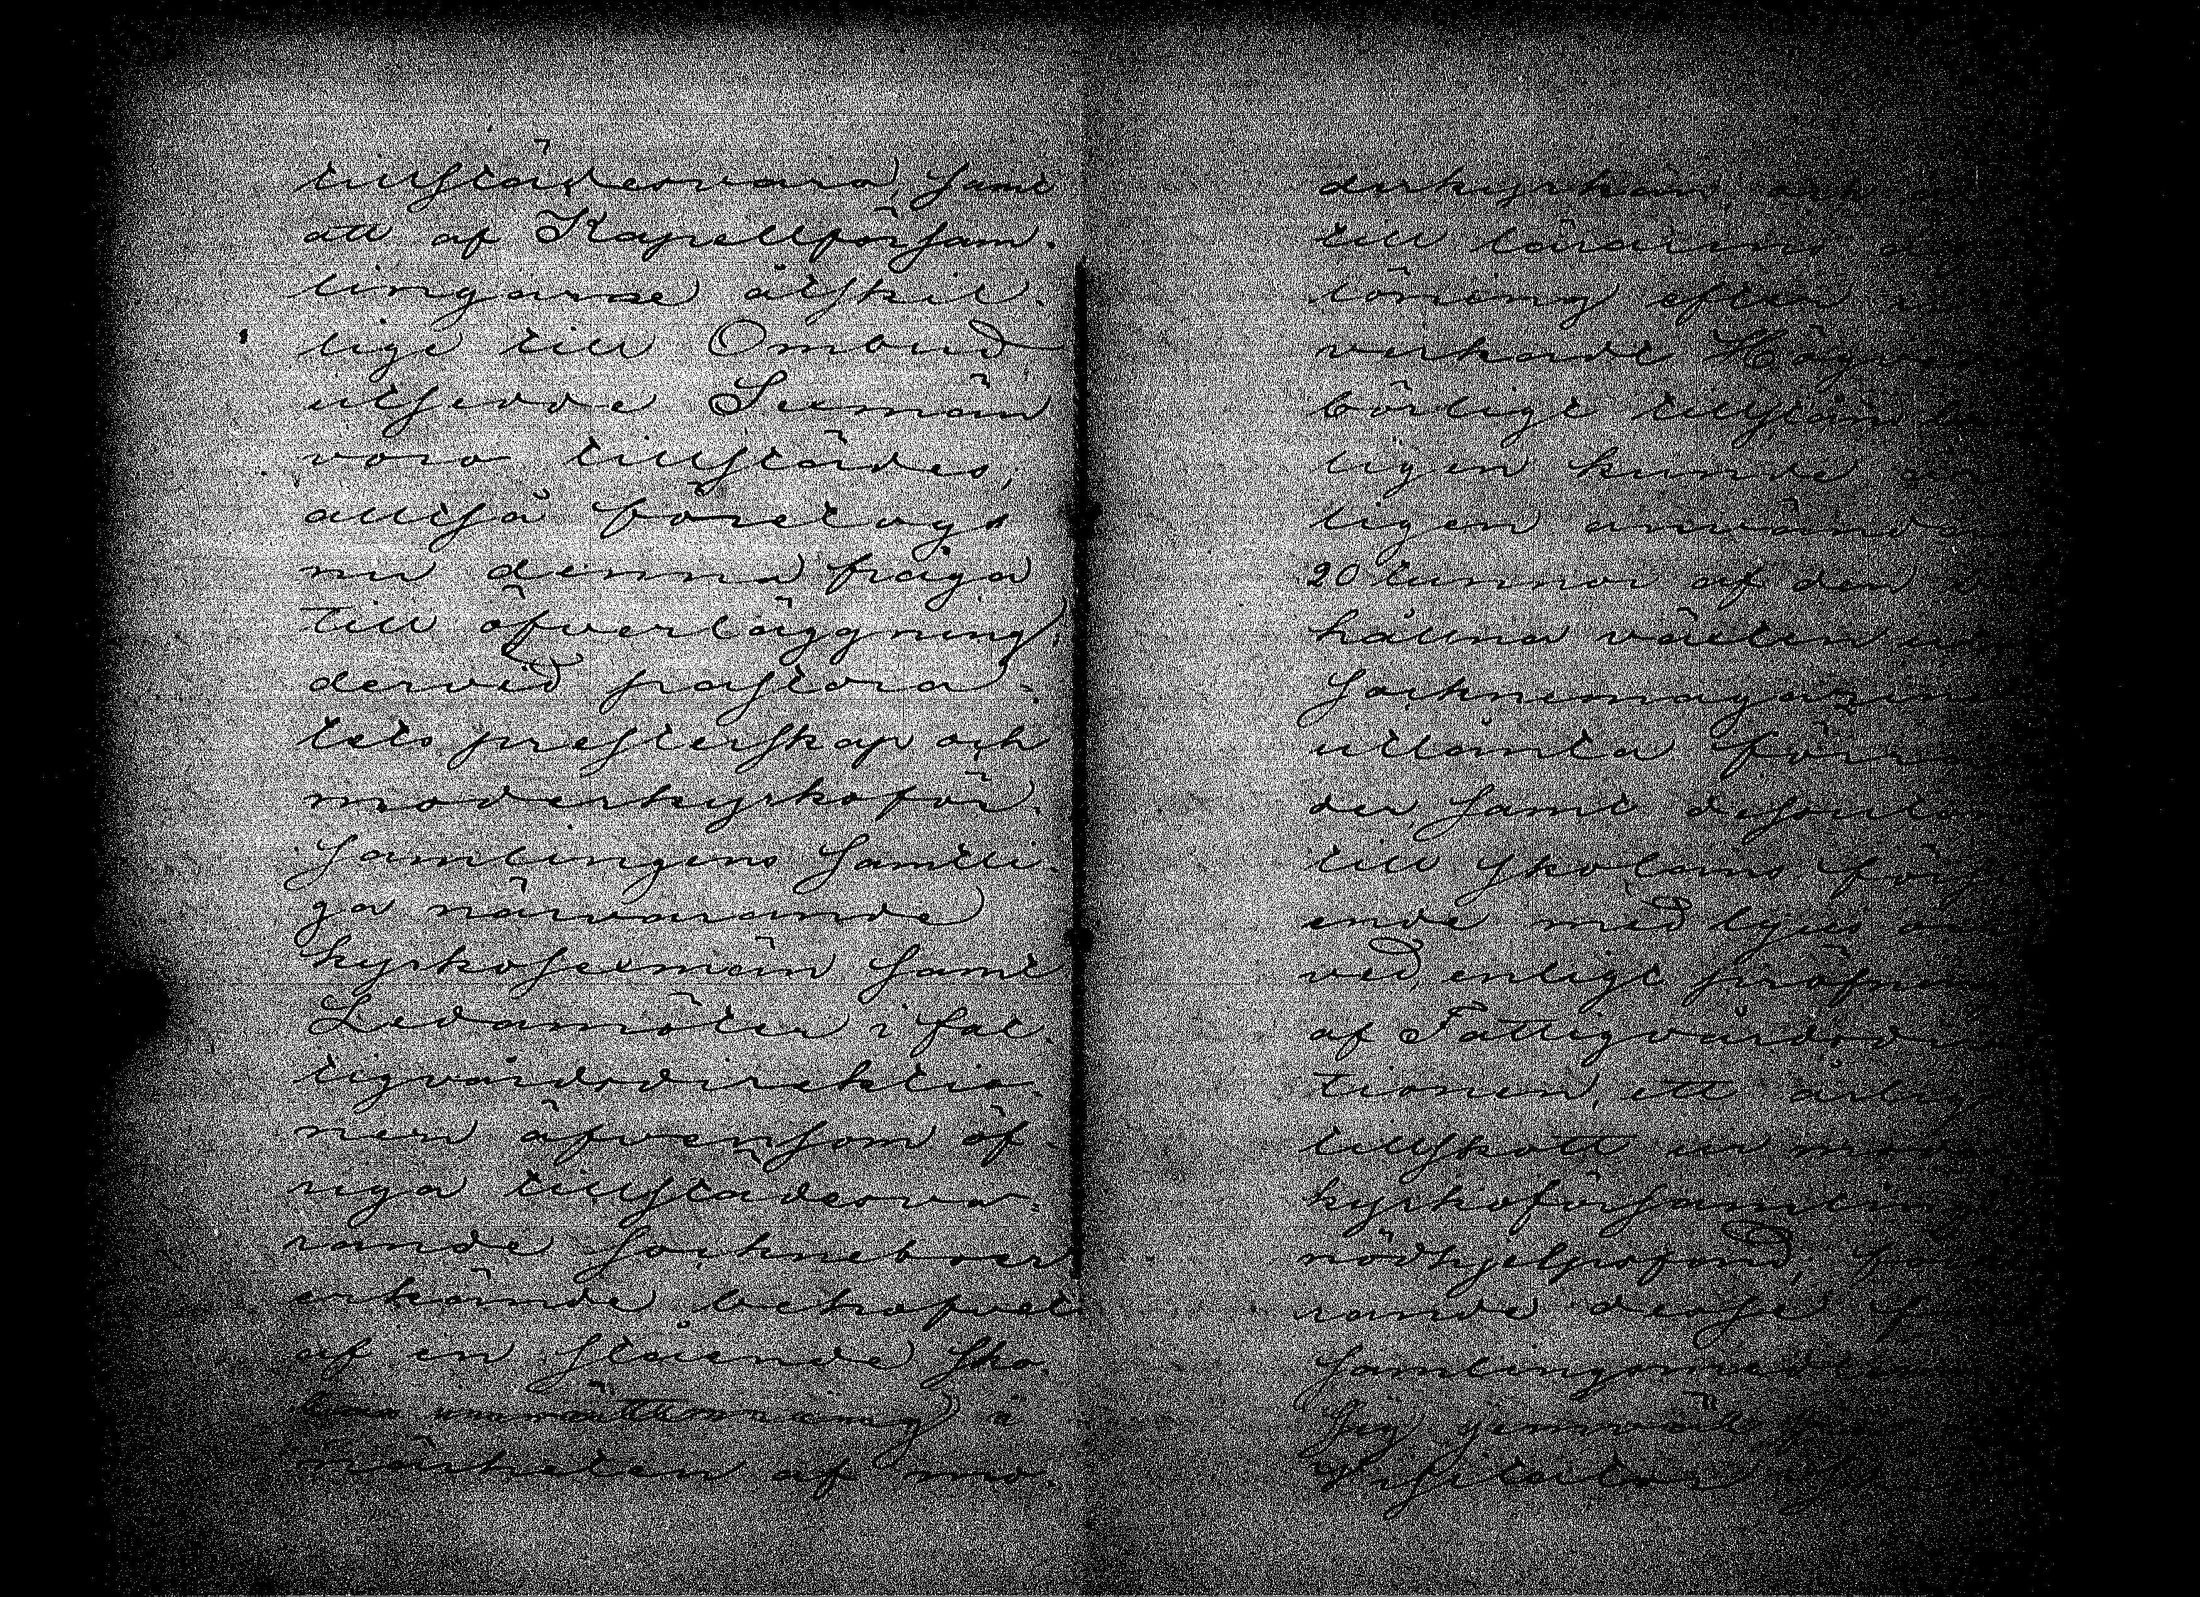 tillstädesvaro, samt
att af Kapellförsam-
lingarne åtskil-
lige till Ombud
utsedde Sexmän
voro tillstädes,
alltså företogs
nu denna fråga
till öfverläggning,
dervid pastora-
tets presterskap och
moderkyrkoför-
samlingens samtli-
ga närvarande
kyrkosexmän samt
Ledamöter i fat-
tigvårdsdirektio-
nen äfvensom öf-
riga tillstädesva-
rande Sockneboer
erkände behofvet
af en stående sko-
i
närheten af mo-
derkyrkan,
till lärarens
löning efter
verkadt
börligt tillstånd
ligen kunde
ligen använd
20 tunnor af den
hållna växten
Socknemagazin
utlånta
der, samt dessutom
till skolans förs
ende med ljus
ved, enligt pröfning
af Fattigvårdsdi
tionen, ett årligt
tillskott ur mod
kyrkoförsamlin
nödhjelpsfond,
rande desse
samlingsmed
sig
Visitator